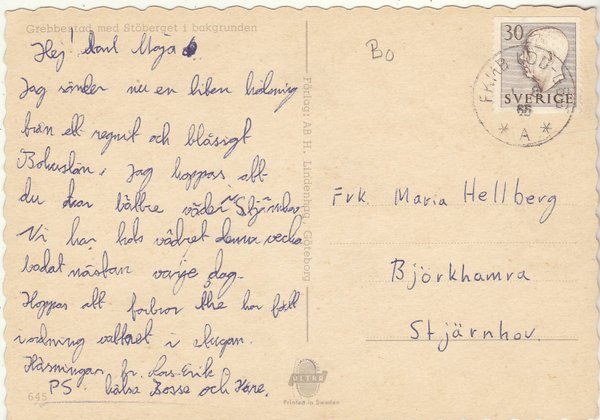 Grebbestad med Stöberget i bakgrunden
Hej! Maja
Jag sänder nu en liten hälsning
från ett regnit och blåsigt
Bohuslän, Jag hoppas att
du har bättre väder Stjärnhov
Vi har vädret denna vecka
badat nästan varje dag.
Hoppas att farbror har fått
i ordning vattnet i stugan.
Hälsningar fr. Lars-Erik
PS. hälsa Bosse och
645
Förlag: AB H. Lindenhag, Göteborg
ULTRA
Printed in Sweden
Bo
30
SVERIGE
A
Frk. Maria Hellberg
Björkhamra
Stjärnhov.